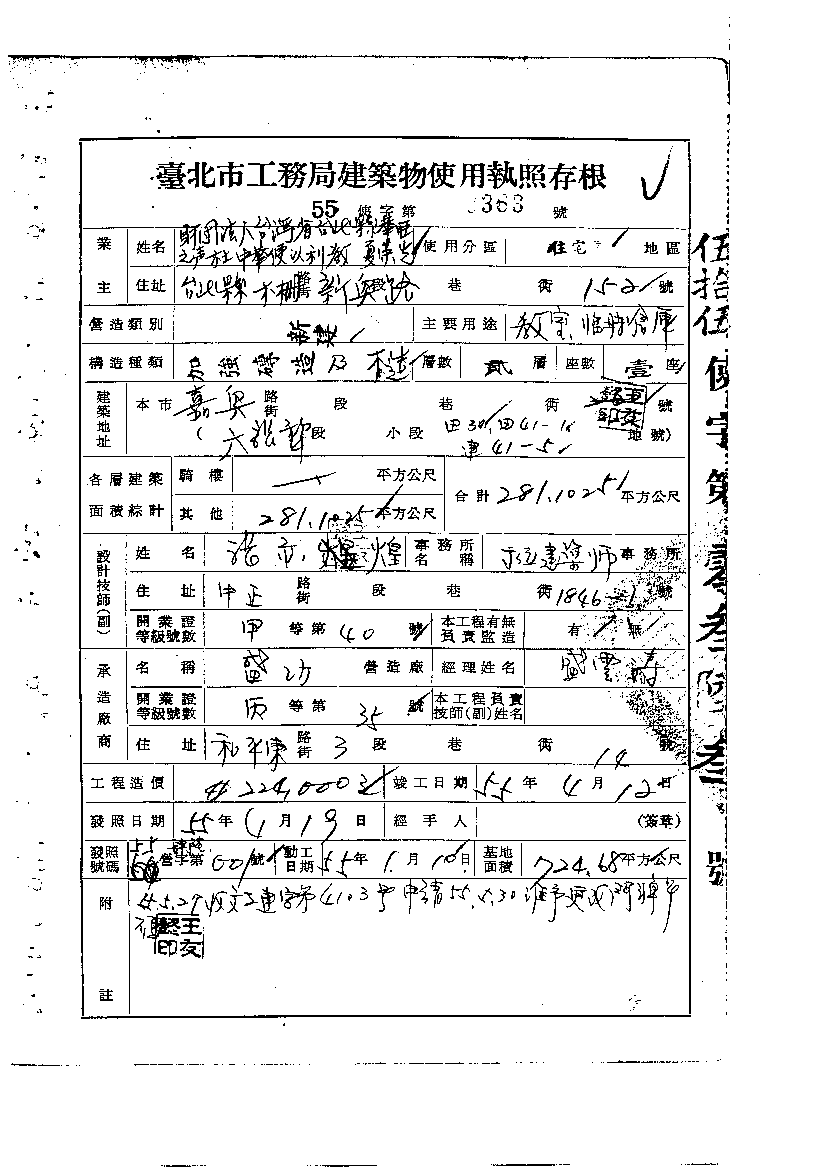 臺北市工務局建築物使用執照存根
55 使字第 0363 號
業主 姓名 財團法人台灣省台北縣 使用分區 住宅 地區
之声 中華 以利教 夏荣光
住址 台北縣木柵 新興路 段 巷 街 152 號
營造類別 新建 主要用途 教室、临時倉庫
構造種類 加強磚造及木造 層數 貳 層 座數 壹 座
建築地址 本市 嘉興 路街 段 巷 街 號
( 六張犁 段 小段 田30, 田41-16 建41-5 地號)
各層建築面積綜計 騎樓 平方公尺 合計 281.1025 平方公尺
其他 281.1025 平方公尺
設計技師(副) 姓名 煌 事務所名稱 建築師 事務所
住址 中正 路街 段 巷 街 1846-1 號
開業證等級號數 甲 等第 40 號 本工程有無負責監造 有 無
承造廠商 名稱 盛功 營造廠 經理姓名 盛雲
開業證等級號數 丙 等第 35 號 本工程負責技師(副)姓名
住址 和平東 路街 3 段 巷 街 14 號
工程造價 #224,000元 竣工日期 55 年 4 月 12 日
發照日期 55 年 4 月 19 日 經手人 (簽章)
發照號碼 55 營字第 001 號 動工日期 55 年 1 月 10 日 基地面積 724.68 平方公尺
附註 收文工建字第4103號申請55.5.30准予更
王友 印
伍拾伍使字第零叁陸叁號